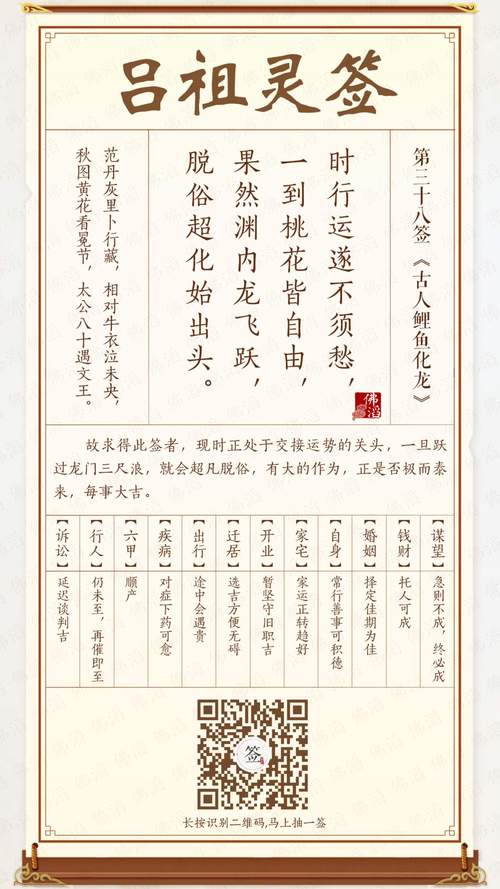 吕祖灵签
第三十八签《古人鲤鱼化龙》
时行运遂不须愁，
一到桃花皆自由，
果然渊内龙飞跃，
脱俗超化始出头。
佛滔
范丹灰里卜行藏，相对牛衣泣未央，
秋图黄花看冕节，太公八十遇文王。
故求得此签者，现时正处于交接运势的关头，一旦跃
过龙门三尺浪，就会超凡脱俗，有大的作为，正是否极而泰
来，每事大吉。
【谋望】急则不成，终必成
【钱财】托人可成
【婚姻】择定佳期为佳
【自身】常行善事可积德
【家宅】家运正转趋好
【开业】暂坚守旧职吉
【迁居】选吉方便无碍
【出行】途中会遇贵
【疾病】对症下药可愈
【六甲】顺产
【行人】仍未至，再催即至
【诉讼】延迟谈判吉
签
长按识别二维码,马上抽一签